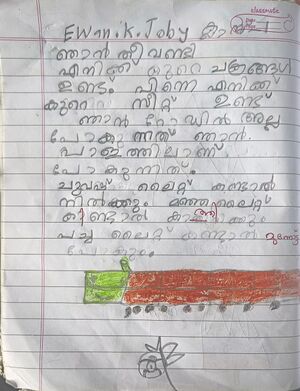 classmate
Date
Page
EWan.k.Joby ക്ലാസ് 1
ഞാൻ തീവണ്ടി
എനിക്ക് കുറെ ചക്രങ്ങൾ
ഉണ്ട്. പിന്നെ എനിക്ക്
കുറെ സീറ്റ് ഉണ്ട്
ഞാൻ റോഡിൽ അല്ല
പോകുന്നത് ഞാൻ
പാളത്തിലാണ്
പോകുന്നത്.
ചുവപ്പ് ലൈറ്റ് കണ്ടാൽ
നിൽക്കും. മഞ്ഞലൈറ്റ്
കണ്ടാൽ കാത്തിരിക്കും
പച്ച ലൈറ്റ് കണ്ടാൽ മുന്നോട്ട്
പോകും.